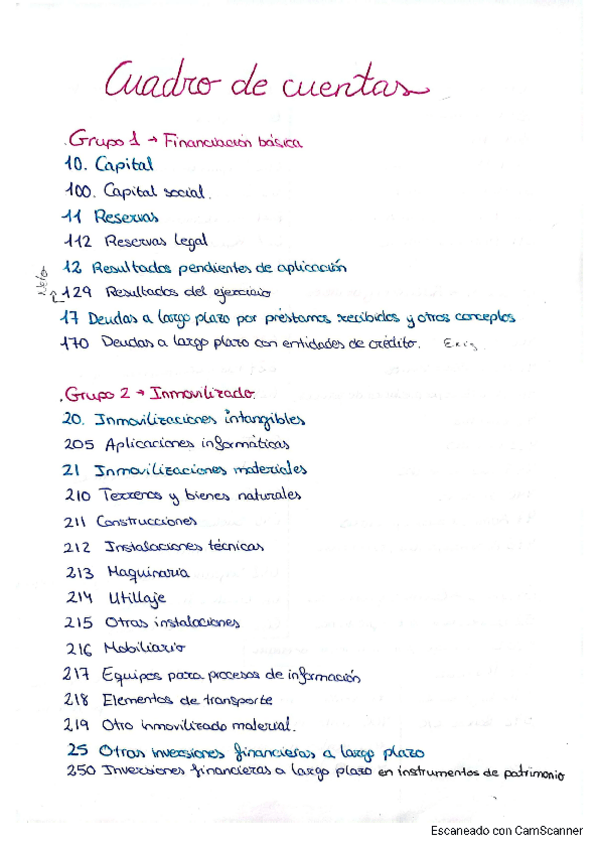 Cuadro de cuentas
.Grupo 1 → Financiación básica
10. Capital
100. Capital social.
11 Reservas
112 Reservas legal
12 Resultados pendientes de aplicación
Neto
129 Resultados del ejercicio
17 Deudas a largo plazo por préstamos recibidos y otros conceptos
170 Deudas a largo plazo con entidades de crédito. Exig.
.Grupo 2 → Inmovilizado.
20. Inmovilizaciones intangibles
205 Aplicaciones informáticas
21 Inmovilizaciones materiales
210 Terrenos y bienes naturales
211 Construcciones
212 Instalaciones técnicas
213 Maquinaria
214 Utillaje
215 Otras instalaciones
216 Mobiliario
217 Equipos para procesos de información
218 Elementos de transporte
219 Otro inmovilizado material.
25 Otras inversiones financieras a largo plazo
250 Inversiones financieras a largo plazo en instrumentos de patrimonio
Escaneado con CamScanner